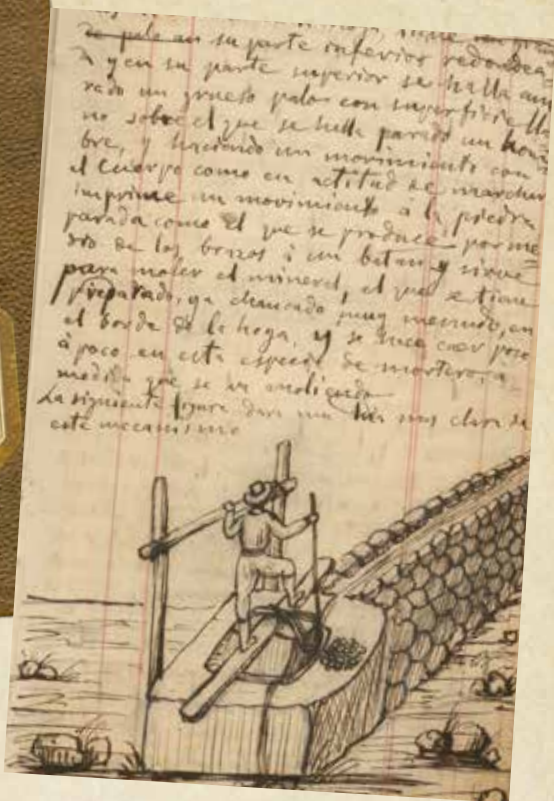 de palo en su parte inferior redondea-
da y en su parte superior se halla am
rado un grueso palo con superficie lla
no sobre el que se halla parado un hom
bre, y haciendo un movimiento con
el cuerpo como en actitud de marchar
imprime un movimiento á la piedra
parada como el que se produce por me
dio de los brazos á un batan y sirve
para moler el mineral, el que se tiene
preparado, ya chancado muy menudo, en
el borde de la hoya, y se hace caer poco
á poco en esta especie de mortero, a
medida que se va moliendo
La siguiente figura dara una idea mas clara de
este mecanismo